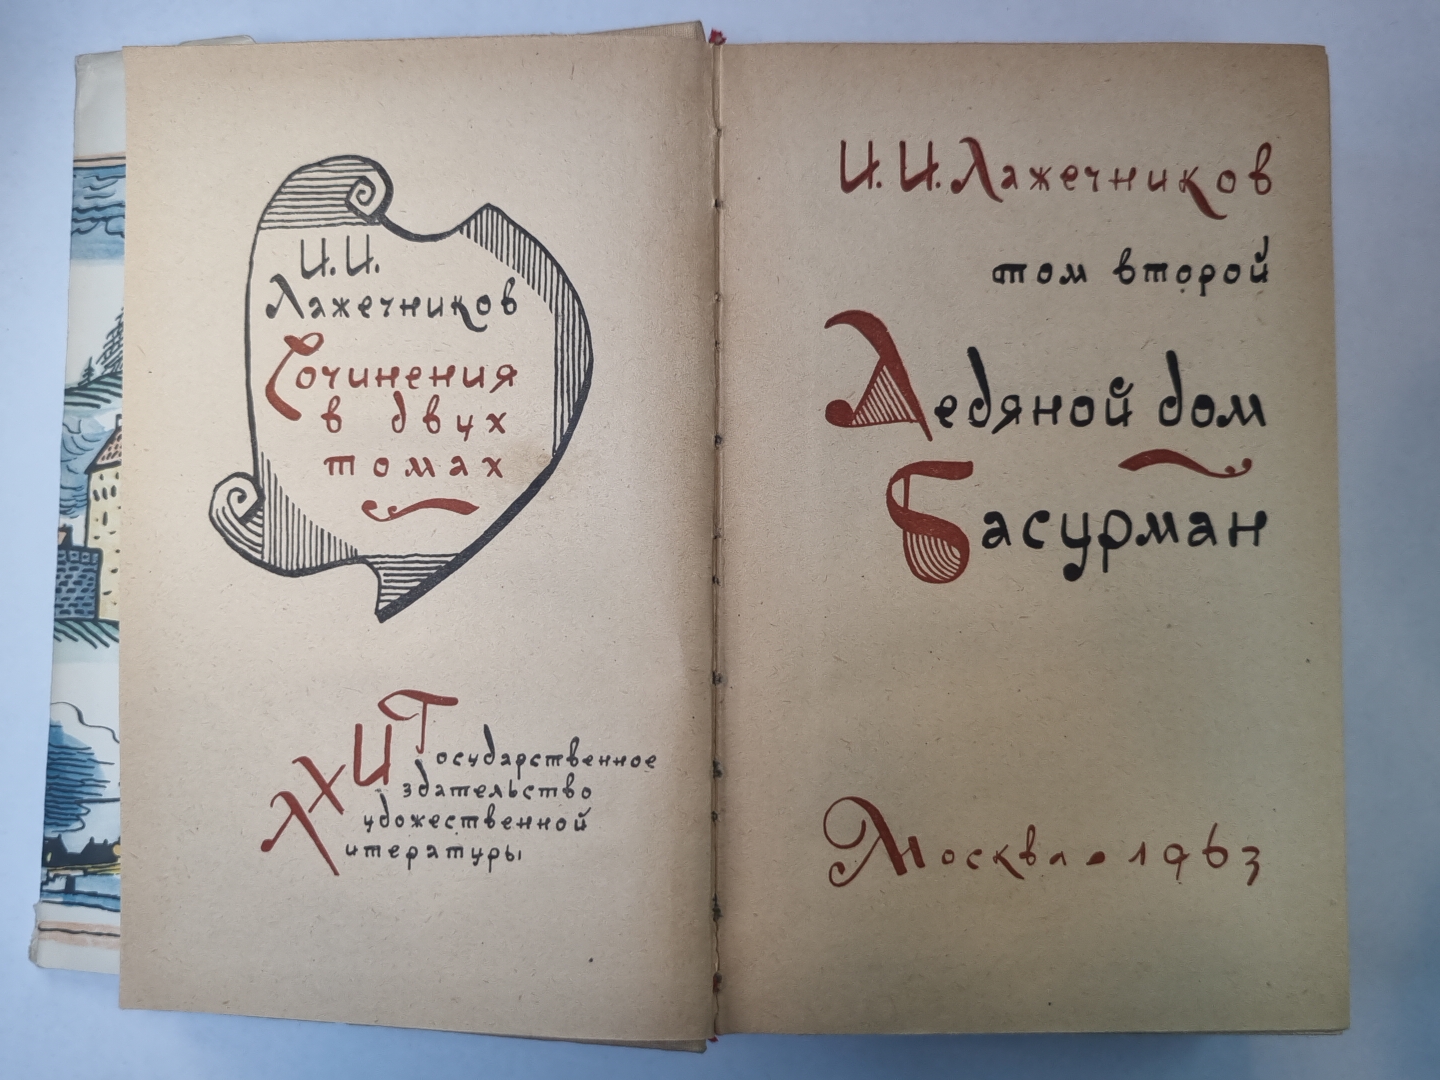 И. И.
Лажечников
Сочинения
в двух
томах
Государственное
Издательство
Художественной
Литературы
И. И. Лажечников
том второй
Ледяной дом
Басурман
Москва • 1963